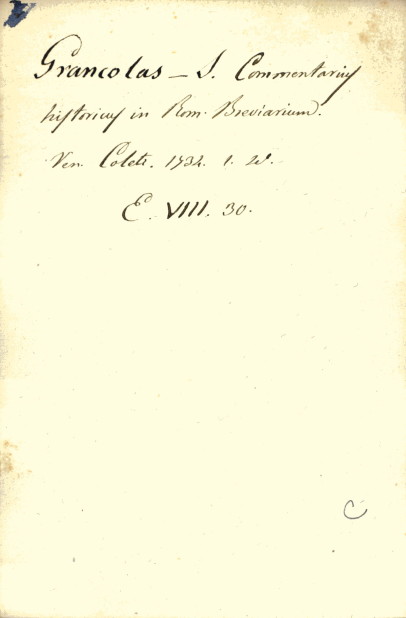 Grancolas – J. Commentarius
historicus in Rom. Breviarium.
Ven. Coleti. 1734. 1.
E. VIII. 30.
C